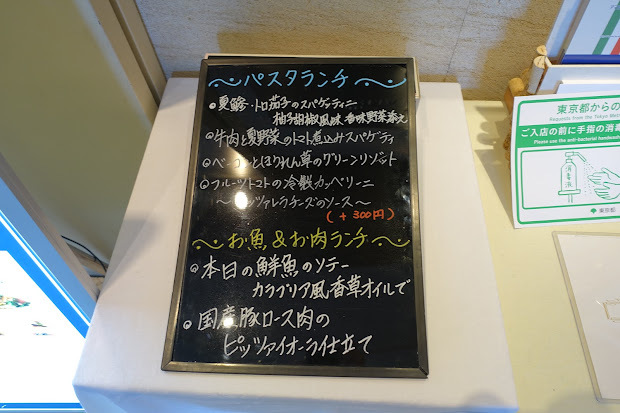 ～パスタランチ～
・夏鱈・トロ茄子のスパゲティーニ
柚子胡椒風味 香味野菜添え
・牛肉と夏野菜のトマト煮込みスパゲティ
・ベーコンとほうれん草のグリーンリゾット
・フルーツトマトの冷製カッペリーニ
～モッツァレラチーズのソース～
(+300円)
～お魚&お肉ランチ～
・本日の鮮魚のソテー
カラブリア風香草オイルで
・国産豚ロース肉の
ピッツァイオーラ仕立て
東京都からの
Requests from the Tokyo Met
ご入店の前に手指の消毒
Please use the anti-bacterial handwash
消毒液
東京都